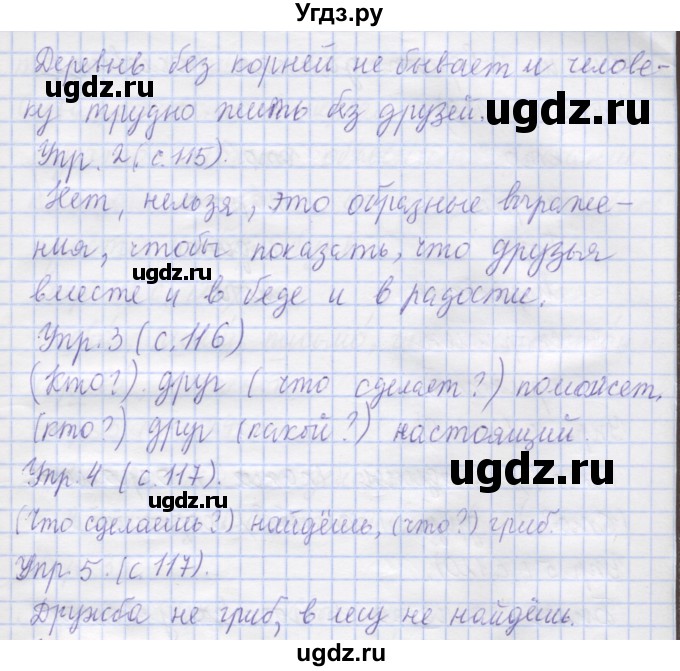 Угдз.ру
Деревьь без корней не бывает и челове-
ку трудно жить без друзей.
ugdz.ru
ugdz.ru
Упр. 2 (с.115).
Нет, нельзя, это образные выраже-
ния, чтобы показать, что друзья
ugdz.ru
вместе и в беде и в радости.
Упр. 3 (с. 116)
(Кто?) друг (что сделает?) поможет,
(кто?) друг (какой?) настоящий.
ugdz.ru
Упр. 4 (с. 117).
ugdz.ru
(Что сделаешь?) найдёшь, (что?) гриб.
Упр. 5. (с. 117).
Дружба не гриб, в лесу не найдёшь.
ugdz.ru
ugdz.ru
Угдз.ру